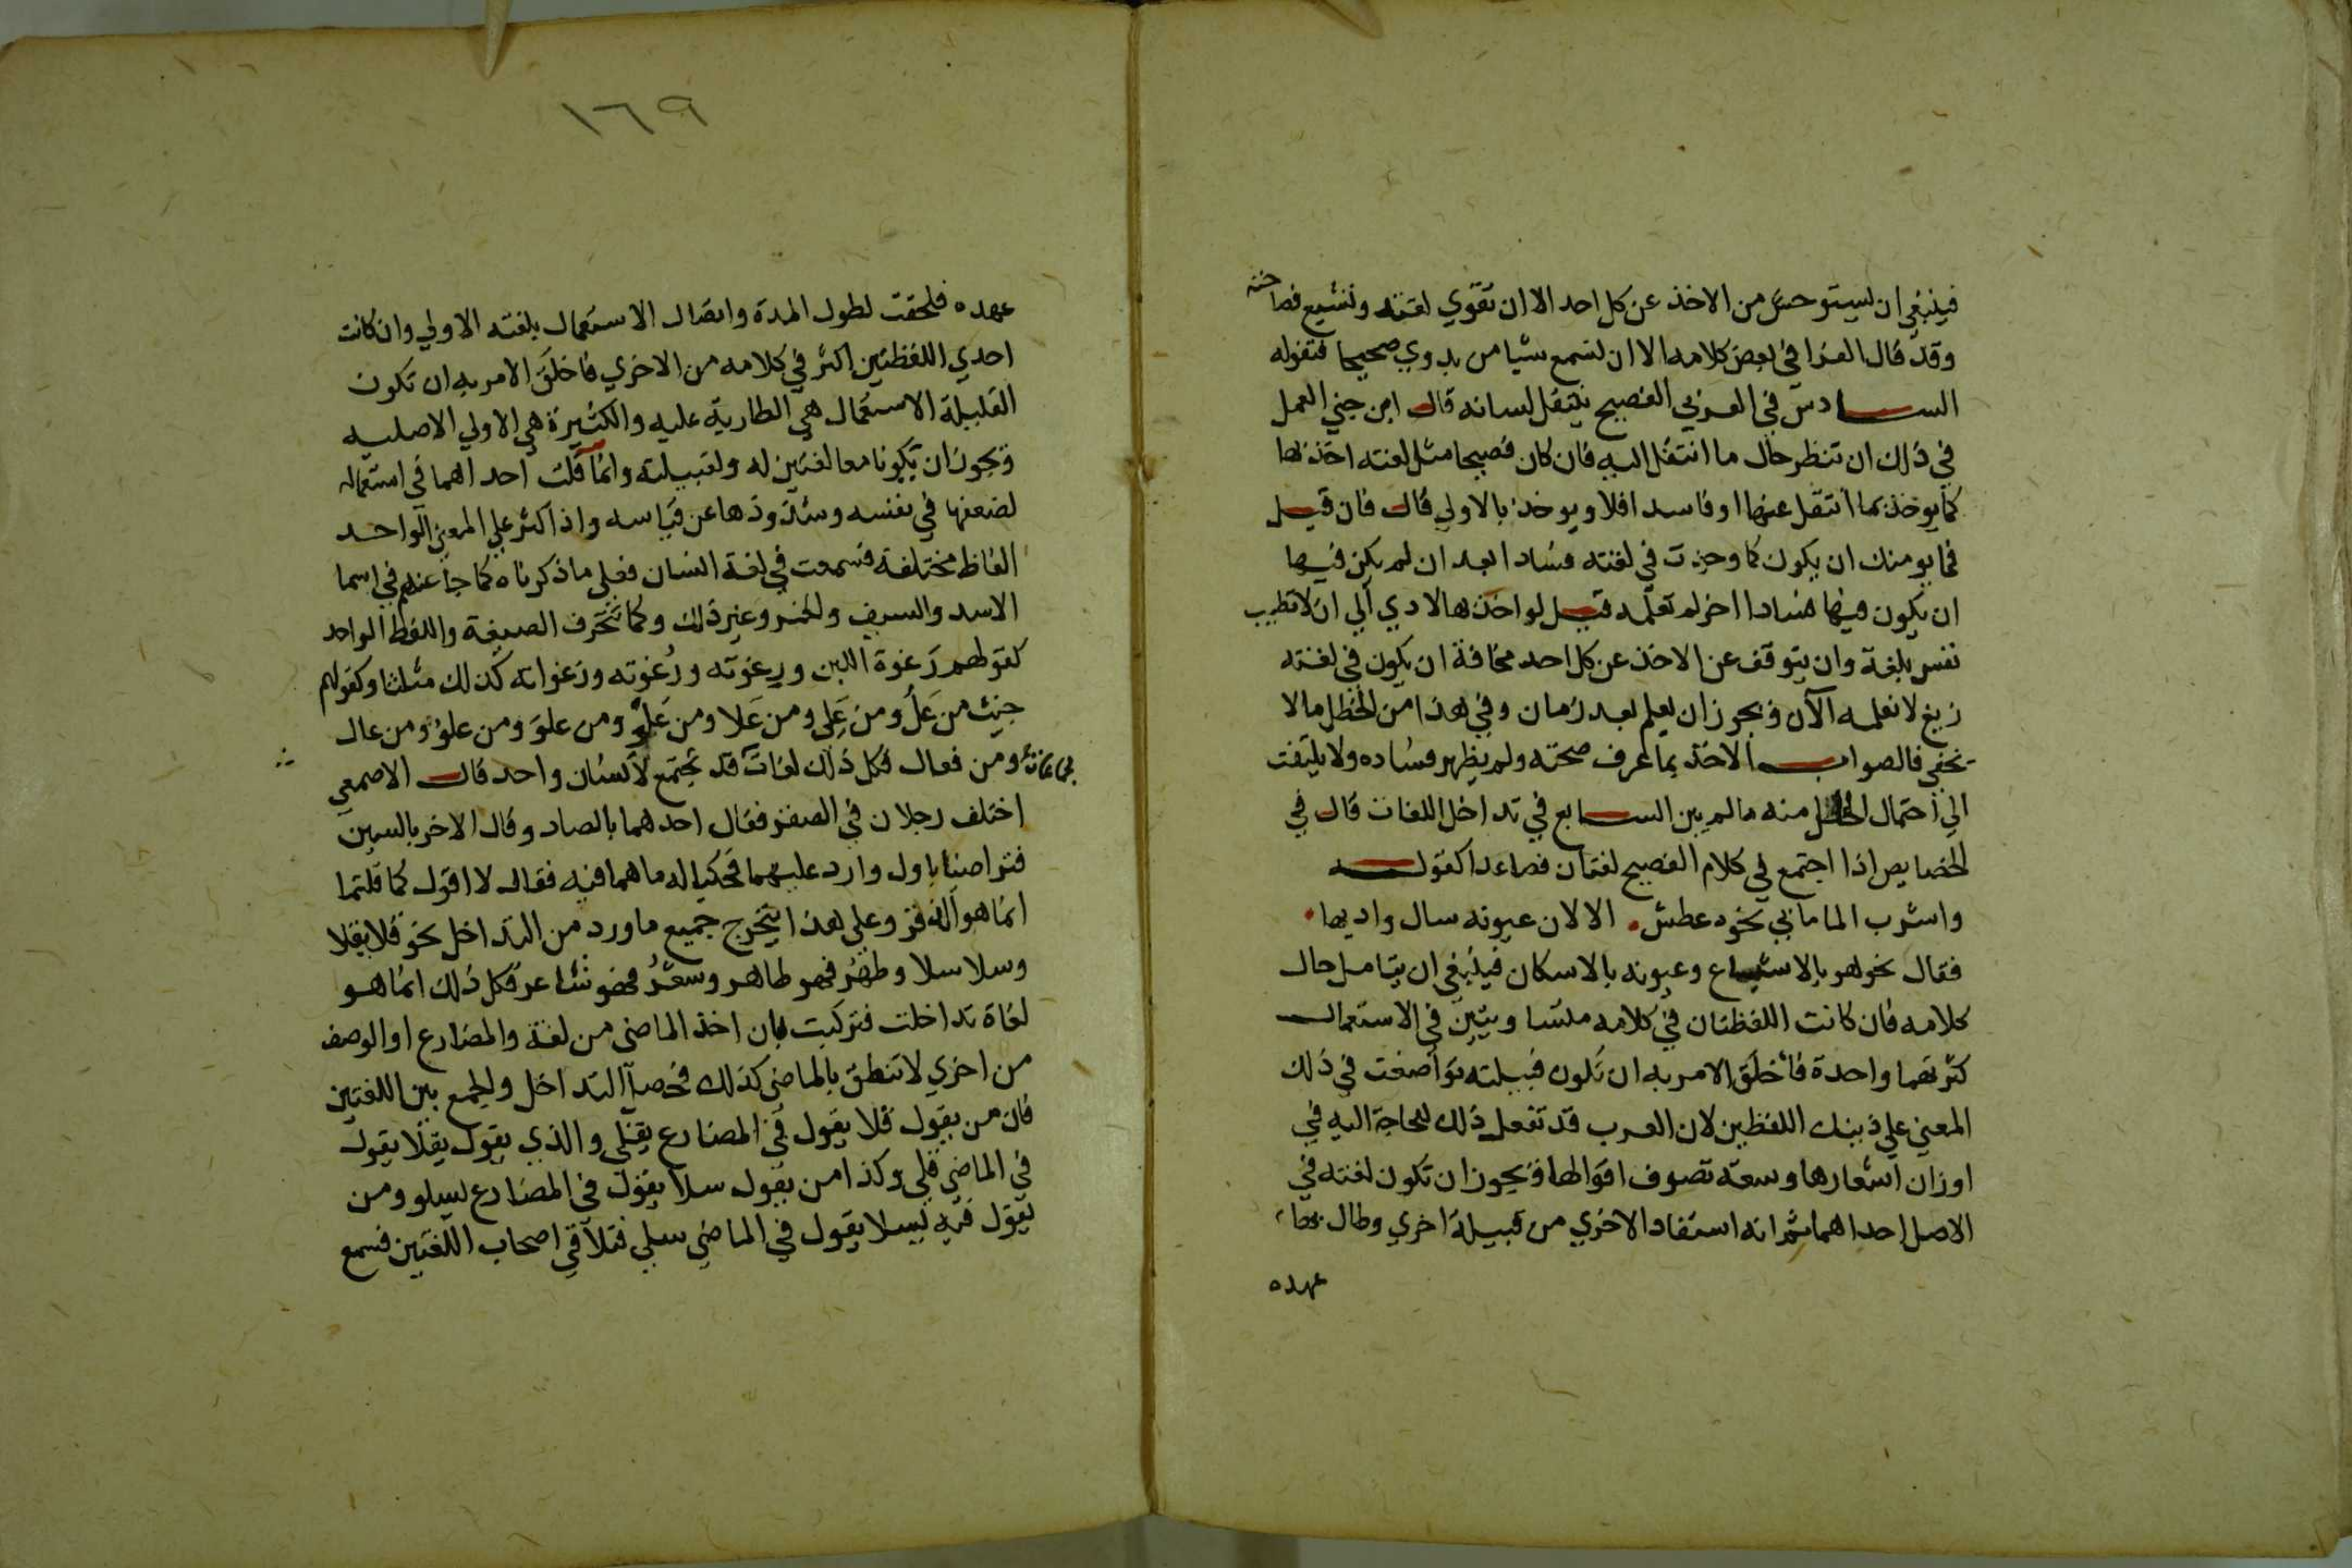 فينبغي ان يستوحش من الاخذ عن كل احد الا ان تقوي لغته وتشيع فصاحته
وقد قال الفرا في بعض كلامه الا ان تسمع شيا من بدوي صحيحا فتقوله
السادس في العربي الفصيح ينتقل لسانه قال ابن جني العمل
في ذلك ان تنظر حال ما انتقل اليه فان كان فصيحا مثل لغته اخذ بها
كما يوخذ بما انتقل عنها او فاسد افلا ويوخذ بالاولي قال فان قيل
فما يومنك ان يكون كما وجدت في لغته فسادا بعد ان لم يكن فيها
ان يكون فيها فسادا اخر لم تعلمه قيل لو اخذ بهالادي الي ان لا تطيب
نفس بلغة وان يتوقف عن الاخذ عن كل احد مخافة ان يكون في لغته
زيغ لا نعلمه الآن ويجوز ان يعلم بعد زمان وفي هذا من الخطل مالا
يخفي فالصواب الاخذ بما عرف صحته ولم يظهر فساده ولا يلتفت
الي احتمال الخلل منه مالم يبن السابع في تداخل اللغات قال في
الخصايص اذا اجتمع في كلام الفصيح لغتان فصاعدا كقوله
واشرب الما مابي نحوه عطش الا لان عيونه سال واديها
فقال نحوهو بالاشباع وعيونه بالاسكان فينبغي ان يتامل حال
كلامه فان كانت اللفظتان في كلامه متساويتين في الاستعمال
كثرتهما واحدة فأخلق الامر به ان تكون قبيلته تواضعت في ذلك
المعني علي ذينك اللفظين لان العرب قد تفعل ذلك للحاجة اليه في
اوزان اشعارها وسعة تصرف اقوالها ويجوز ان تكون لغته في
الاصل احداهما ثم انه استفاد الاخري من قبيلة اخري وطال بها
عهده
١٦٩
عهده فلحقت لطول المدة واتصال الاستعمال بلغته الاولي وان كانت
احدي اللفظتين اكثر في كلامه من الاخري فاخلق الامر به ان تكون
القليلة الاستعمال هي الطارية عليه والكثيرة هي الاولي الاصليه
ويجوز ان تكونا معا لغتين له ولقبيلته وانما قلت احداهما في استعماله
لضعفها في نفسه وشذوذها عن قياسه واذا كثر علي المعني الواحد
الفاظ مختلفة فسمعت في لغة انسان فعلي ما ذكرناه كما جا عنهم في اسما
الاسد والسيف والخمر وغير ذلك وكما تنحرف الصيغة واللفظ الواحد
كقولهم رَغوة اللبن ورِغوته ورُغوته ورغواته كذلك مثلثا وكقولهم
جيت من عَلُ ومن عَلِي ومن عَلا ومن عَلْوُ ومن علوَ ومن علوُ ومن عال
ومن فعال فكل ذلك لغات قد تجتمع لانسان واحد قال الاصمعي
اختلف رجلان في الصقر فقال احدهما بالصاد وقال الاخر بالسين
فتراضيا باول وارد عليهما فحكيا له ماهما فيه فقال لا اقول كما قلتما
انما هو الزقر وعلي هذا يتخرج جميع ماورد من التداخل نحو قلا يقلا
وسلا سلا وطهُر فهو طاهر وشعُر فهو شاعر فكل ذلك انما هو
لغاة تداخلت فتركبت بان اخذ الماضي من لغة والمضارع او الوصف
من اخري لا تنطق بالماضي كذلك فحصل التداخل والجمع بين اللغتين
فان من يقول قلا يقول في المضارع يقلي والذي يقول يقلا يقول
في الماضي قلي وكذا من يقول سلا يقول في المضارع يسلو ومن
يقول فيه يسلا يقول في الماضي سلي فتلاقي اصحاب اللغتين فسمع